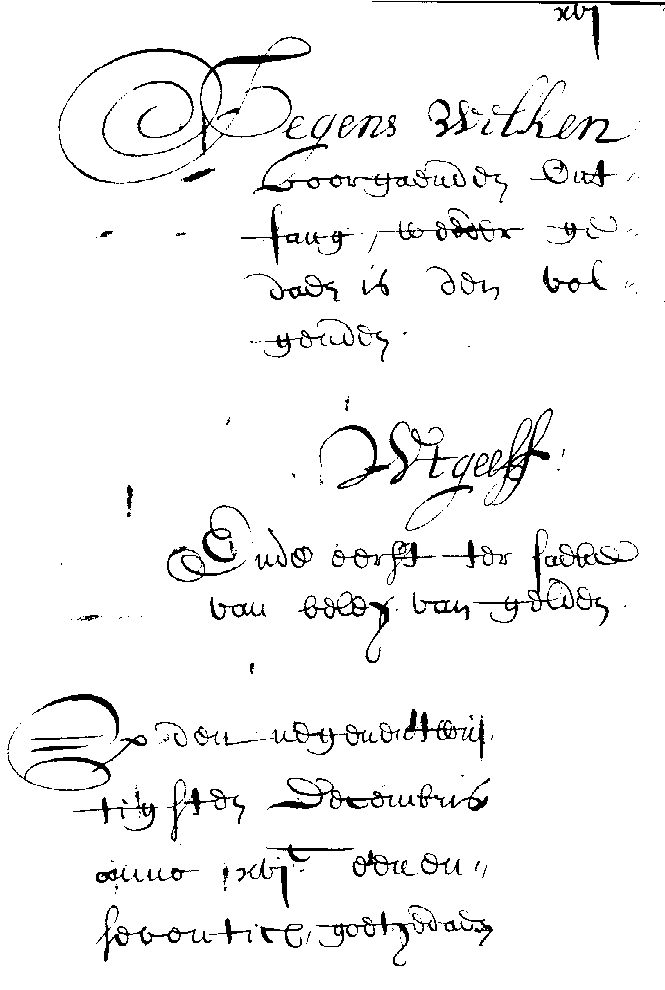 xvj
Tegens Wilken
voorgaenden Ont-
fang, weder ge-
daen is den vol-
genden.
Wtgeeff:
Ende eerst ter saecke
van beleg van gelden
Op den negenentwin
tichsten Decembris
anno xvjc eenen-
seventich,